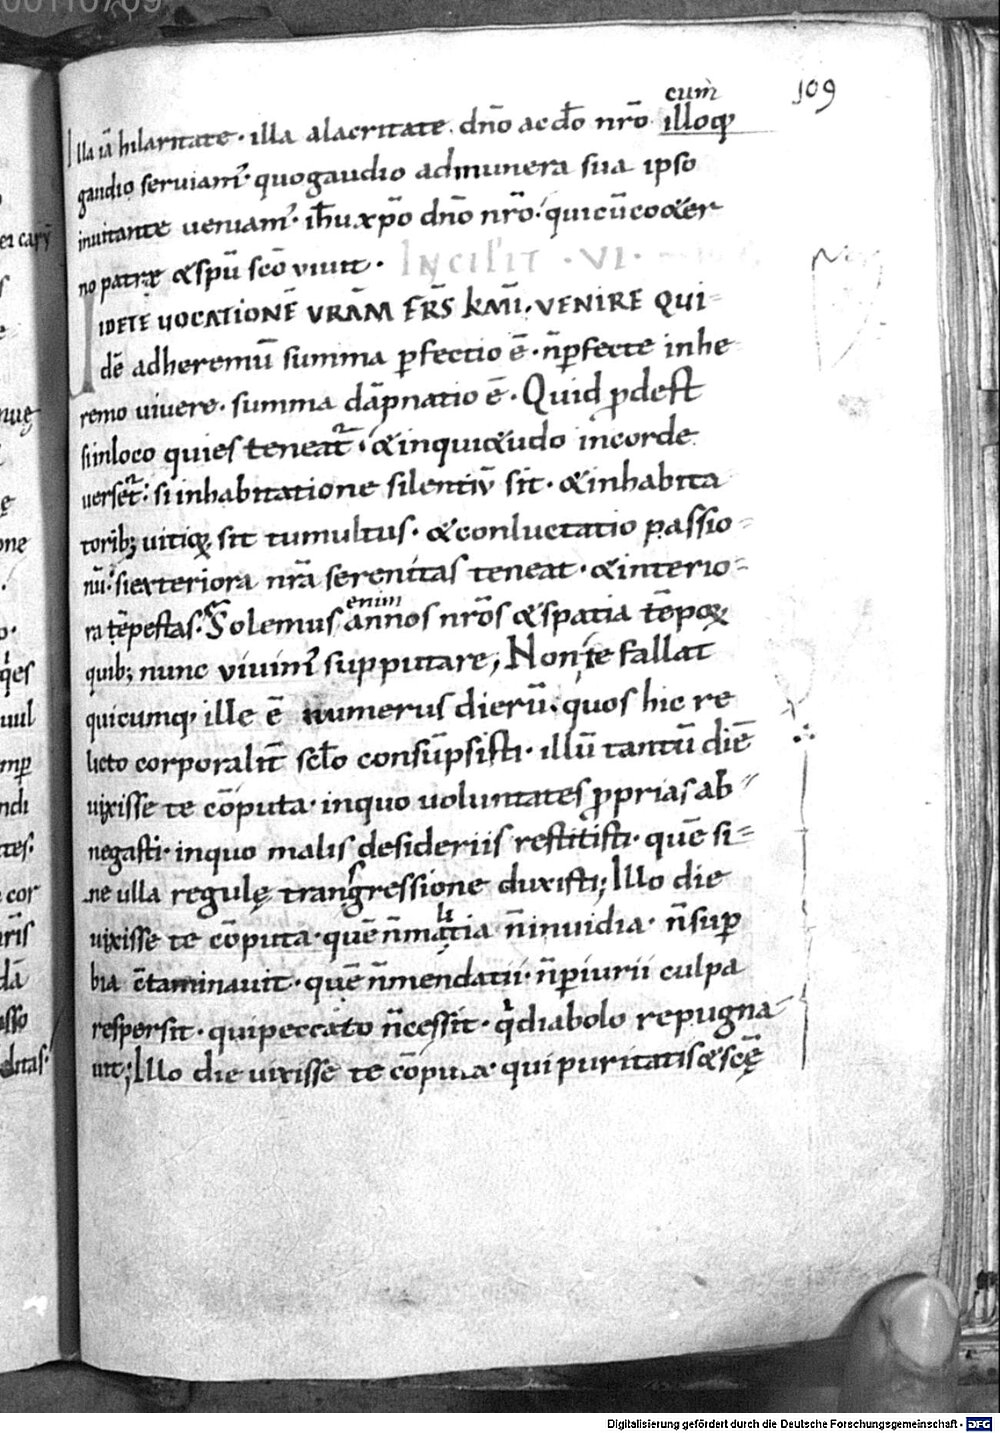 109
cum
Illa iā hilaritate · illa alacritate dn̄o ac dō nr̄o illoq;
gaudio seruiam᷒ quo gaudio ad munera sua ipso
inuitante ueniam᷒ · ih̄u xp̄o dn̄o nr̄o · qui cū co&er
no patre &spū scō viuit · INCIPIT · VI ·
VIDETE UOCATIONĒ VRĀM FR̄S KM̄I · VENIRE QUI
dē ad heremū summa ꝑfectio ē · n̄ ꝑfecte in he
remo uiuere · summa dāpnatio ē · Quid ꝓdest
si in loco quies teneat᷑ · & inqui&udo in corde
uerset᷑ · si in habitatione silentiū sit · & in habita
torib; uitioꝝ sit tumultus · & conluctatio passio
nū · si exteriora nr̄a serenitas teneat · & interio
ra tēpestas · Solemus enim annos nr̄os & spatia tēpoꝝ
quib; nunc viuim᷒ supputare; Non te fallat
quicumq; ille ē numerus dierū · quos hic re
licto corporalit̄ sc̄lo consūpsisti · illū tantū diē
uixisse te cōputa · in quo uoluntates ꝓprias ab
negasti · in quo malis desideriis restitisti · quē si
ne ulla regulę transgressione duxisti; Illo die
uixisse te cōputa · quē n̄ malitia n̄ inuidia · n̄ suꝑ
bia c̄taminauit · quē n̄ mendatii · n̄ ꝑiurii culpa
respersit · qui peccato n̄ cessit · qͥ diabolo repugna
uit; Illo die uixisse te cōputa · qui puritatis & scę̄
Digitalisierung gefördert durch die Deutsche Forschungsgemeinschaft · DFG